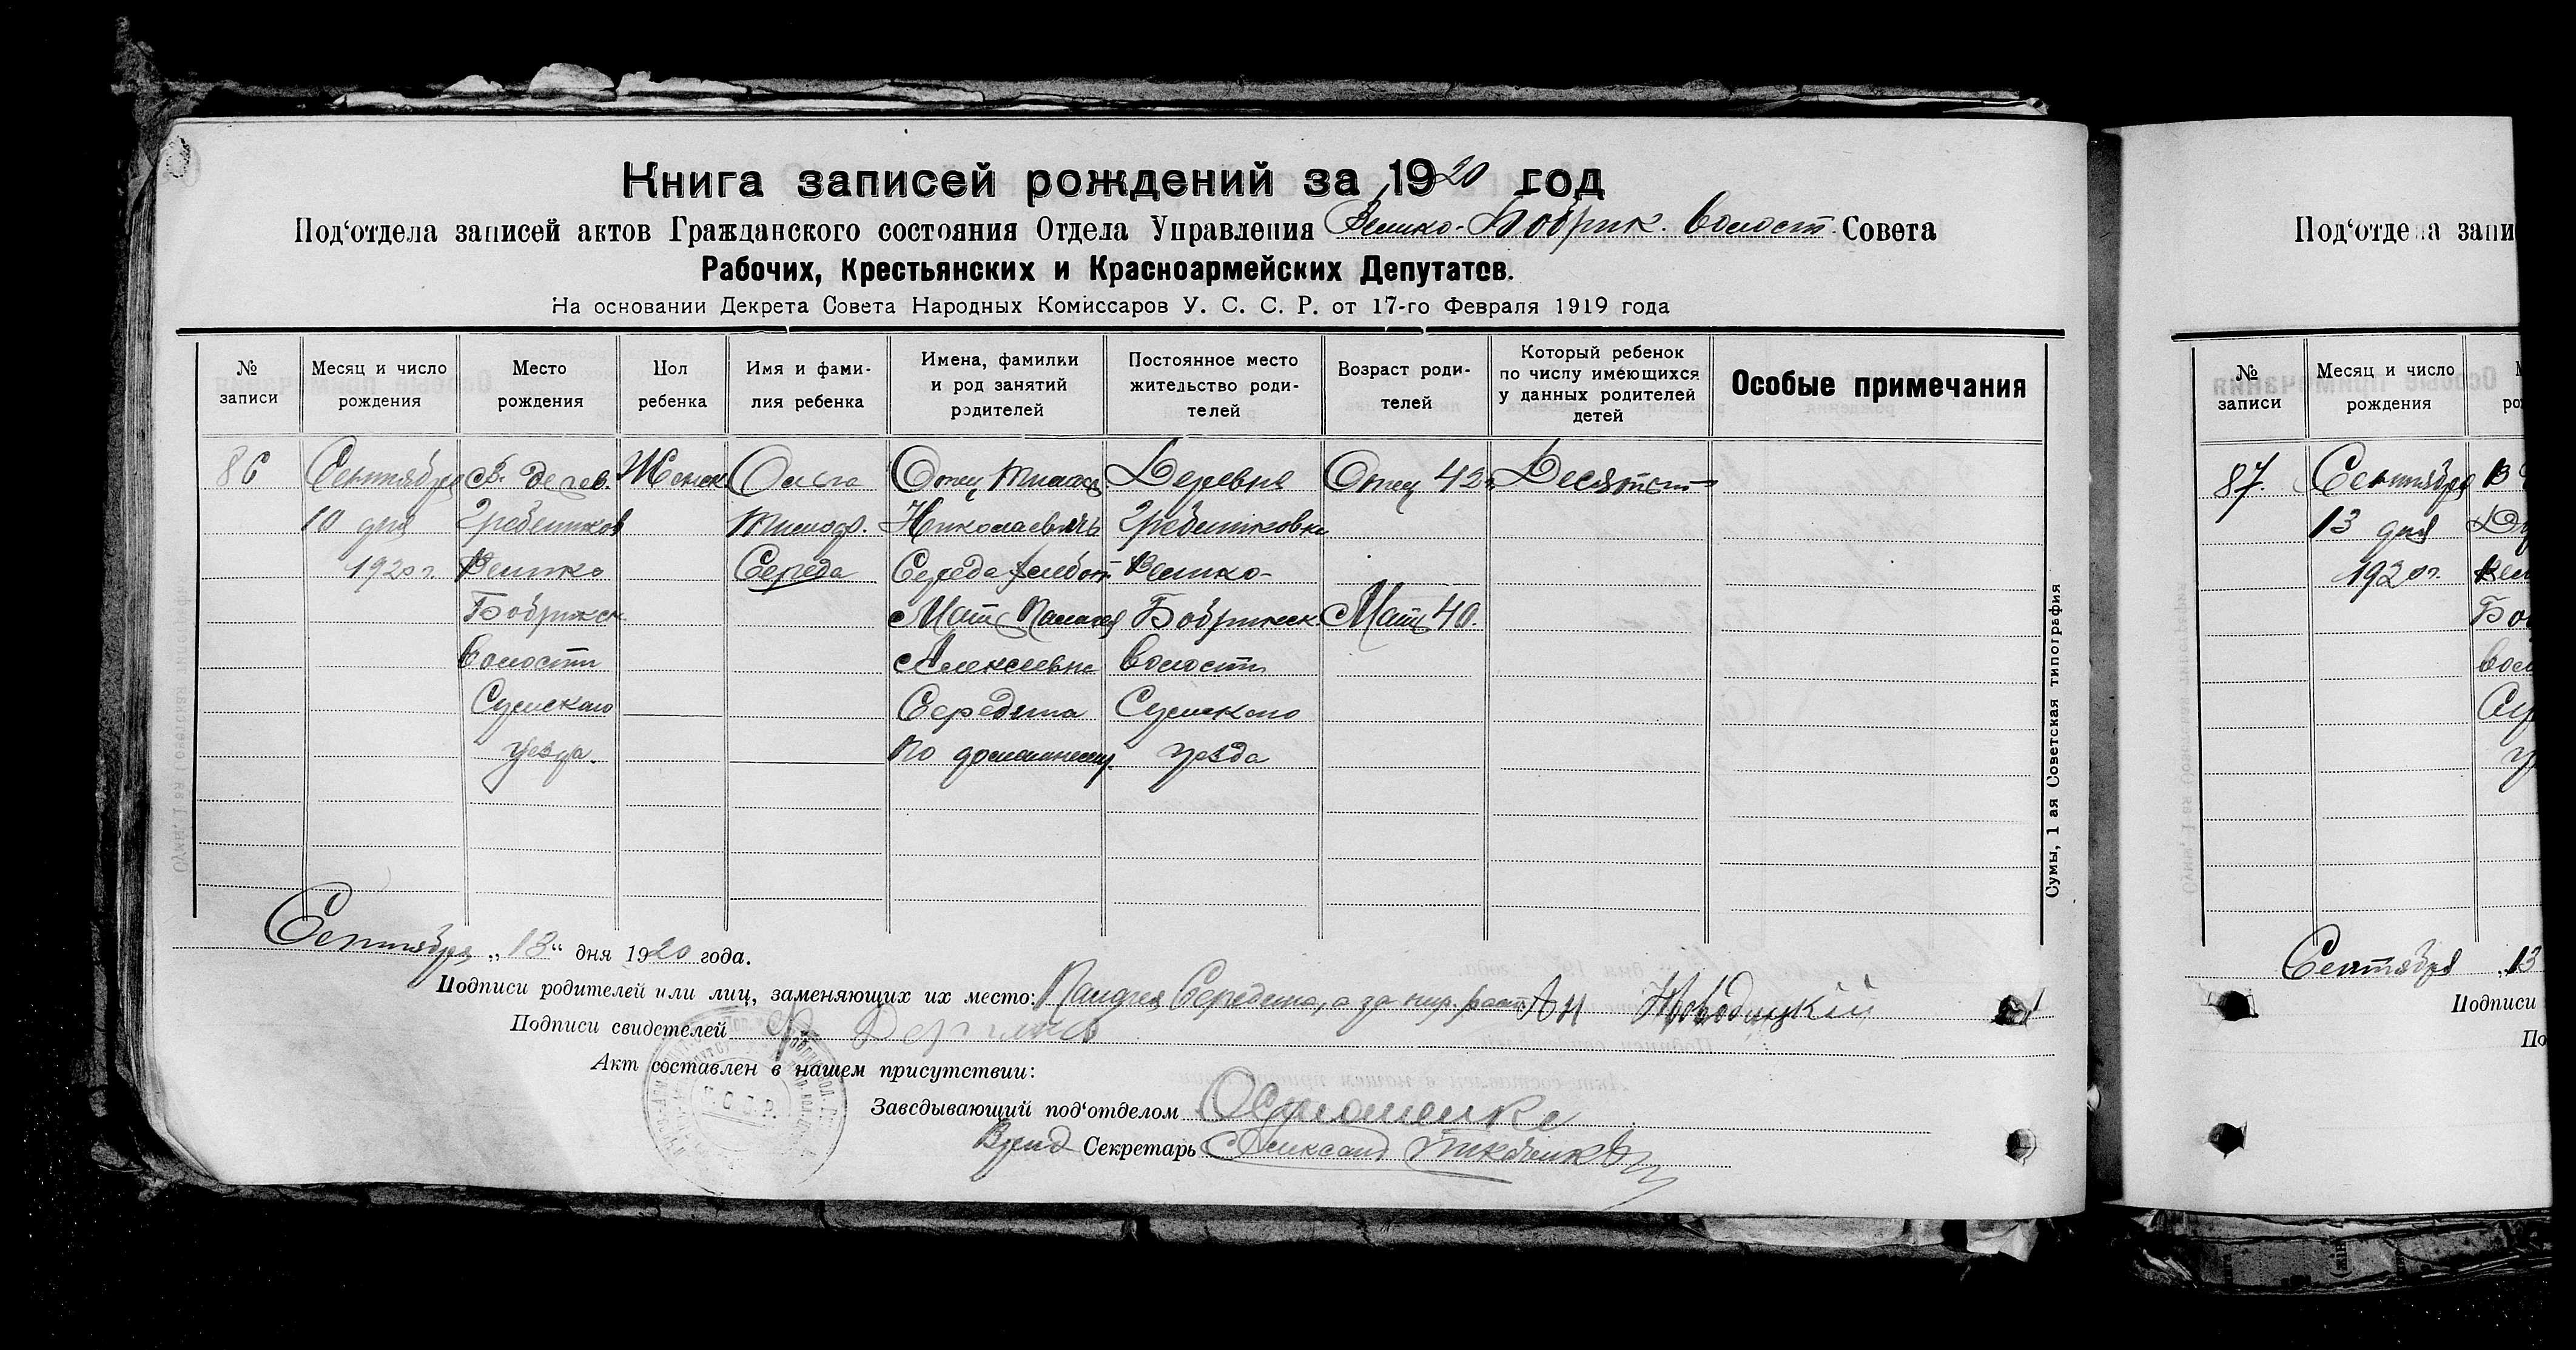 Книга записей рождений за 1920 год
Под‘отдела записей актов Гражданского состояния Отдела Управления Велико-Бобрик. Волост. Совета
Рабочих, Крестьянских и Красноармейских Депутатов.
На основании Декрета Совета Народных Комиссаров У. С. С. Р. от 17-го Февраля 1919 года
№ записи
Месяц и число рождения
Место рождения
Пол ребенка
Имя и фами- лия ребенка
Имена, фамилии и род занятий родителей
Постоянное место жительство роди- телей
Возраст роди- телей
Который ребенок по числу имеющихся у данных родителей детей
Особые примечания
86
Сентября
10 дня
1920 г.
Велико
Бобрикск
Волости
Сумского
уезда.
Женск
Ольга
Тимоф.
Середа
Отец Тимофей
Николаевичь
Середа хлебоп.
Мать
Алексеевна
Середина
по домашнему.
Деревня
Гребениковка
Велико-
Бобрикск.
волости
Сумского
уезда
Отец 42
Мать 40.
Десятый
Сентября „13“ дня 1920 года.
Подписи родителей или лиц, заменяющих их место: Середина, а за
Подписи свидетелей
Акт составлен в нашем присутствии:
Заведывающий под‘отделом
Врид Секретарь
Сумы, 1 ая Советская типография
Под‘отдела запи
№ записи
Месяц и число рождения
87.
Сентября
13 дня
1920 г.
Сентября 13
Подписи